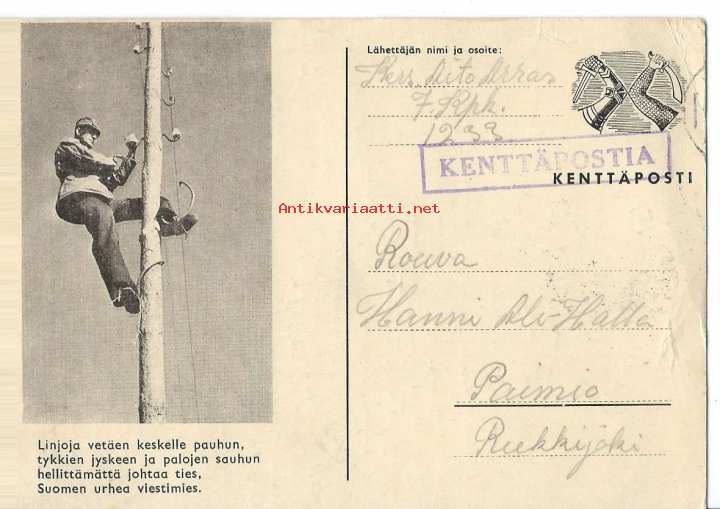 Lähettäjän nimi ja osoite:
Kers. Aito Arras
7. Kpk.
1233
KENTTÄPOSTIA
KENTTÄPOSTI
Antikvariaatti.net
Rouva
Hanni Ali-Halla
Paimio
Rukkijoki
Linjoja vetäen keskelle pauhun,
tykkien jyskeen ja palojen sauhun
hellittämättä johtaa ties,
Suomen urhea viestimies.